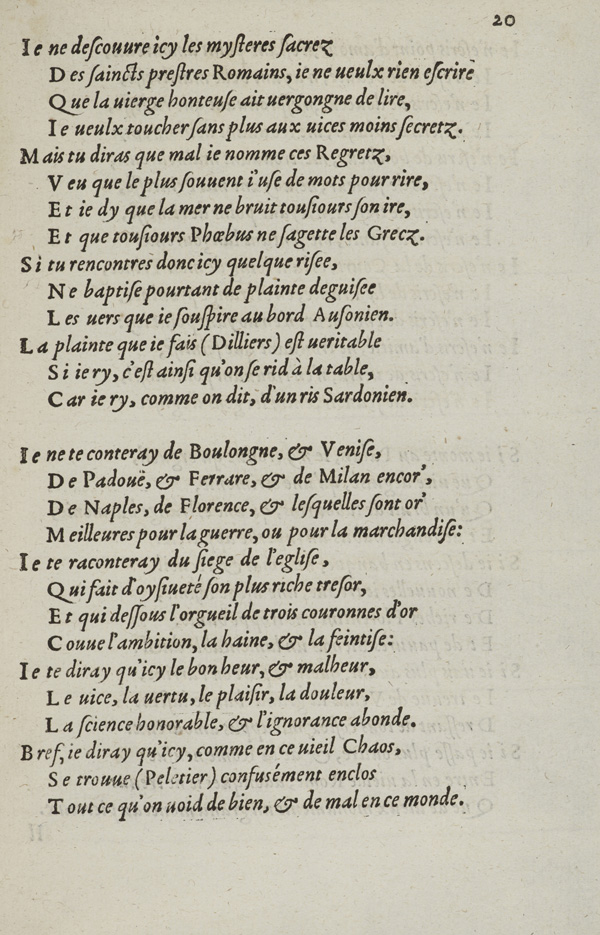 20
Ie ne deſcouure icy les myſteres ſacrez
Des ſaincts preſtres Romains, ie ne ueulx rien eſcrire
Que la uierge honteuſe ait uergongne de lire,
Ie ueulx toucher ſans plus aux uices moins ſecretz.
Mais tu diras que mal ie nomme ces Regretz,
Veu que le plus ſouuent i'uſe de mots pour rire,
Et ie dy que la mer ne bruit touſiours ſon ire,
Et que touſiours Phœbus ne ſagette les Grecz.
Si tu rencontres donc icy quelque riſee,
Ne baptiſe pourtant de plainte deguiſee
Les uers que ie ſouſpire au bord Auſonien.
La plainte que ie fais (Dilliers) eſt ueritable
Si ie ry, c'eſt ainſi qu'on ſe rid à la table,
Car ie ry, comme on dit, d'un ris Sardonien.
Ie ne te conteray de Boulongne, & Veniſe,
De Padouë, & Ferrare, & de Milan encor',
De Naples, de Florence, & leſquelles ſont or'
Meilleures pour la guerre, ou pour la marchandiſe:
Ie te raconteray du ſiege de l'egliſe,
Qui fait d'oyſiueté ſon plus riche treſor,
Et qui deſſous l'orgueil de trois couronnes d'or
Couue l'ambition, la haine, & la feintiſe:
Ie te diray qu'icy le bon heur, & malheur,
Le uice, la uertu, le plaiſir, la douleur,
La ſcience honorable, & l'ignorance abonde.
Bref, ie diray qu'icy, comme en ce uieil Chaos,
Se trouue (Peletier) confusément enclos
Tout ce qu'on uoid de bien, & de mal en ce monde.